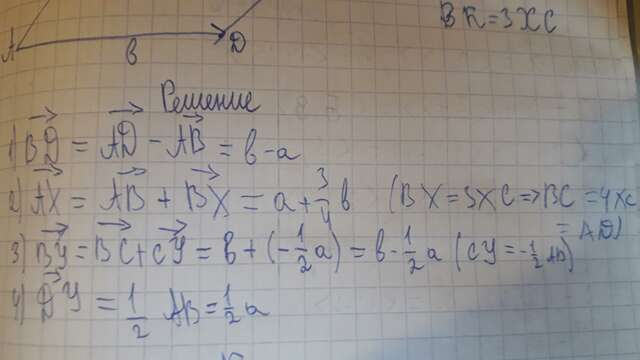 ВК=3ХС
А в D
Решение
1) BD = AD - AB = в-а
2) AX = AB + BX = a + 3/4 в (BX=3XC=>BC=4XC
=AD)
3) BY = BC + CY = в + (-1/2 a) = в - 1/2 a (CY = -1/2 AB)
4) DY = 1/2 AB = 1/2 a